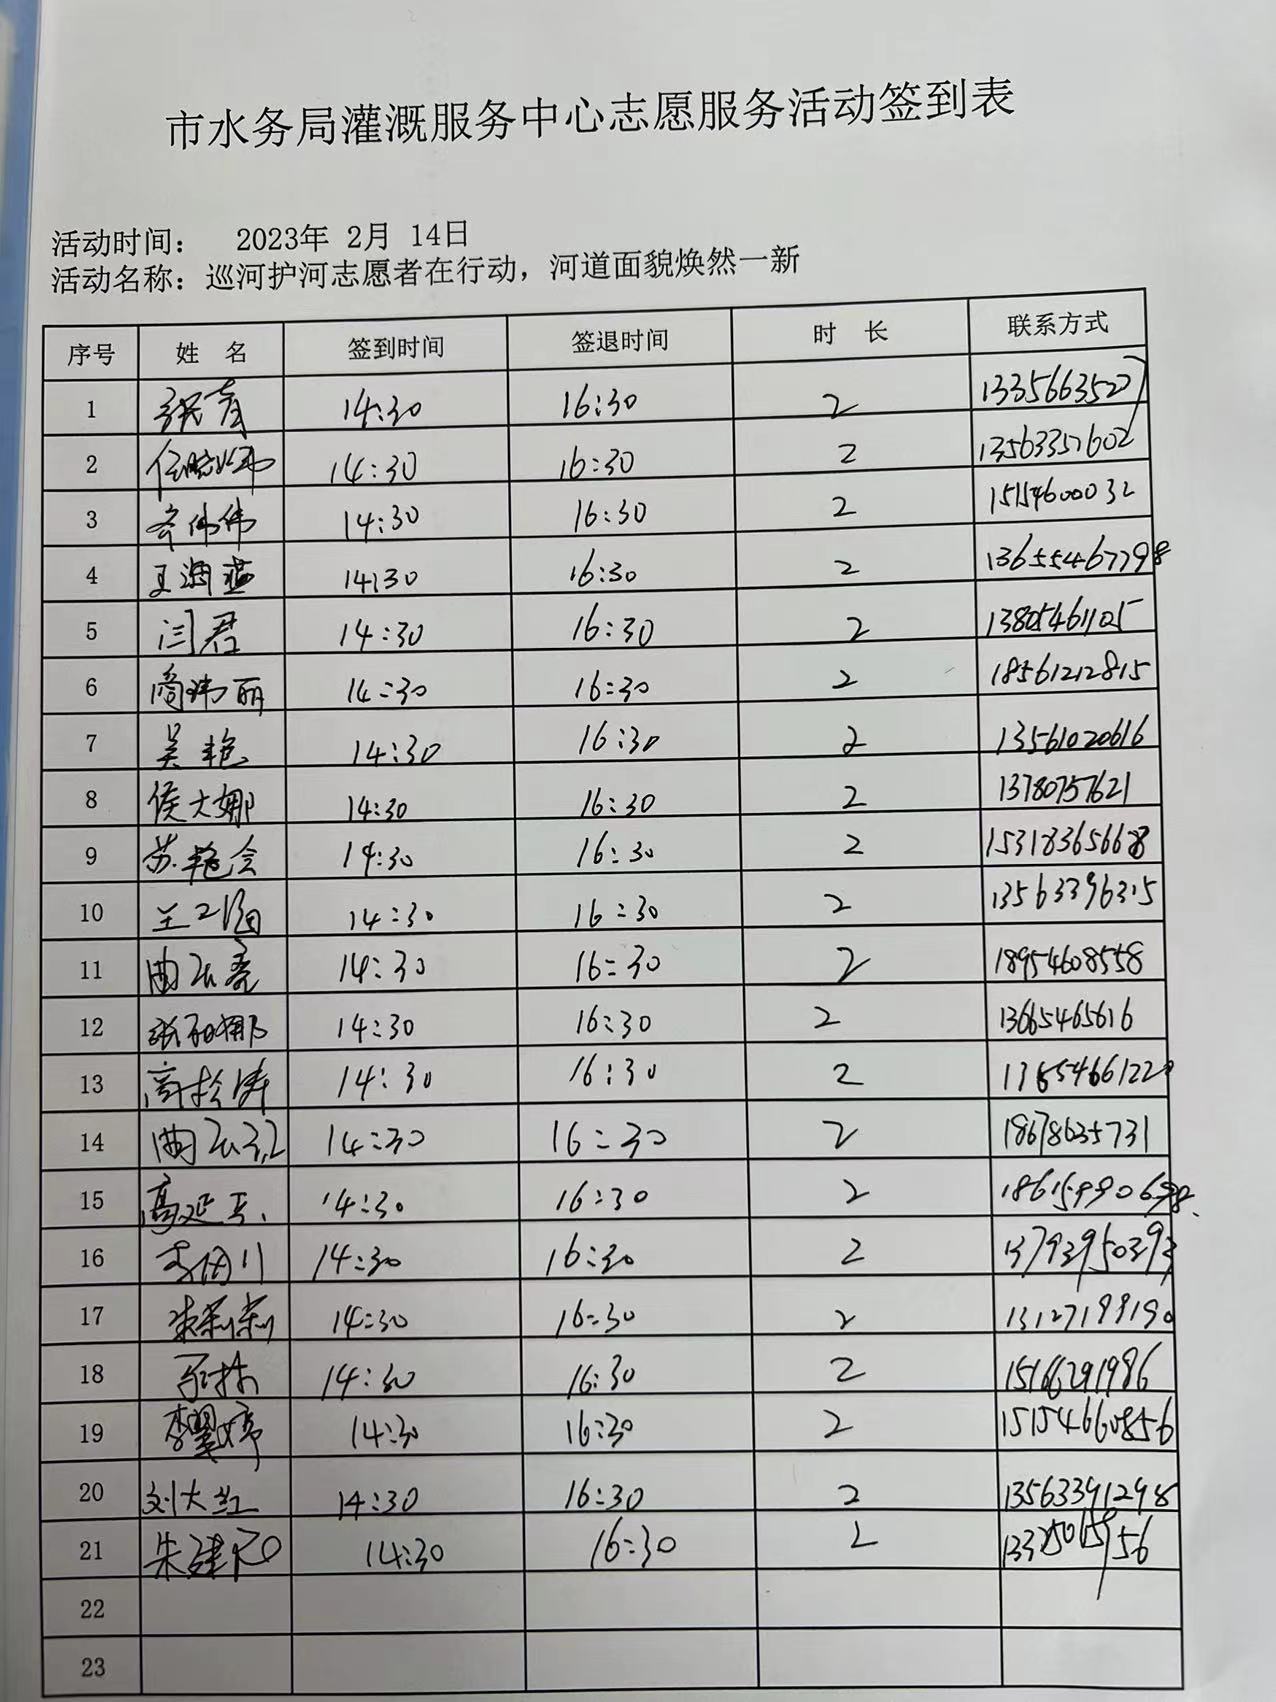 市水务局灌溉服务中心志愿服务活动签到表
活动时间： 2023年 2月 14日
活动名称：巡河护河志愿者在行动，河道面貌焕然一新
序号 姓 名 签到时间 签退时间 时 长 联系方式
1 14:30 16:30 2
2 14:30 16:30 2 13563357602
3 齐伟伟 14:30 16:30 2 15154600032
4 王海燕 14:30 16:30 2 13655467798
5 闫君 14:30 16:30 2 13805461105
6 14:30 16:30 2 18561212815
7 吴艳 14:30 16:30 2 13561020616
8 侯大娜 14:30 16:30 2 13780757621
9 苏艳会 14:30 16:30 2
10 14:30 16:30 2 13563396315
11 曲云亮 14:30 16:30 2 18954608558
12 14:30 16:30 2 13665465616
13 高松涛 14:30 16:30 2
14 14:30 16:30 2 18678635731
15 高延玉 14:30 16:30 2
16 14:30 16:30 2 13793950393
17 朱莉莉 14:30 16:30 2 13127199190
18 14:30 16:30 2 15166291986
19 李翼婷 14:30 16:30 2 15154660856
20 刘大红 14:30 16:30 2 13563391298
21 14:30 16:30 2
22
23